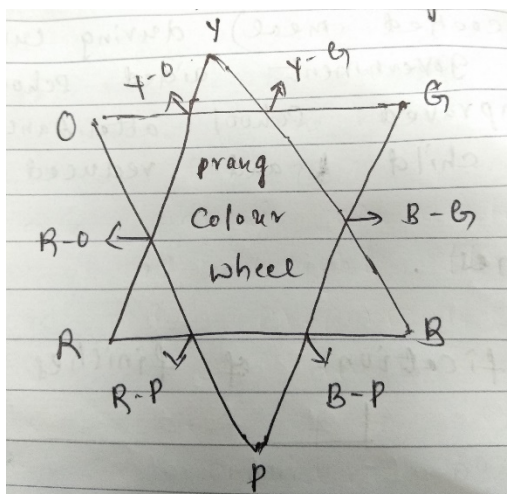 Y
Y-O
Y-G
O
G
prang
colour
wheel
R-O
B-G
R
B
R-P
B-P
P